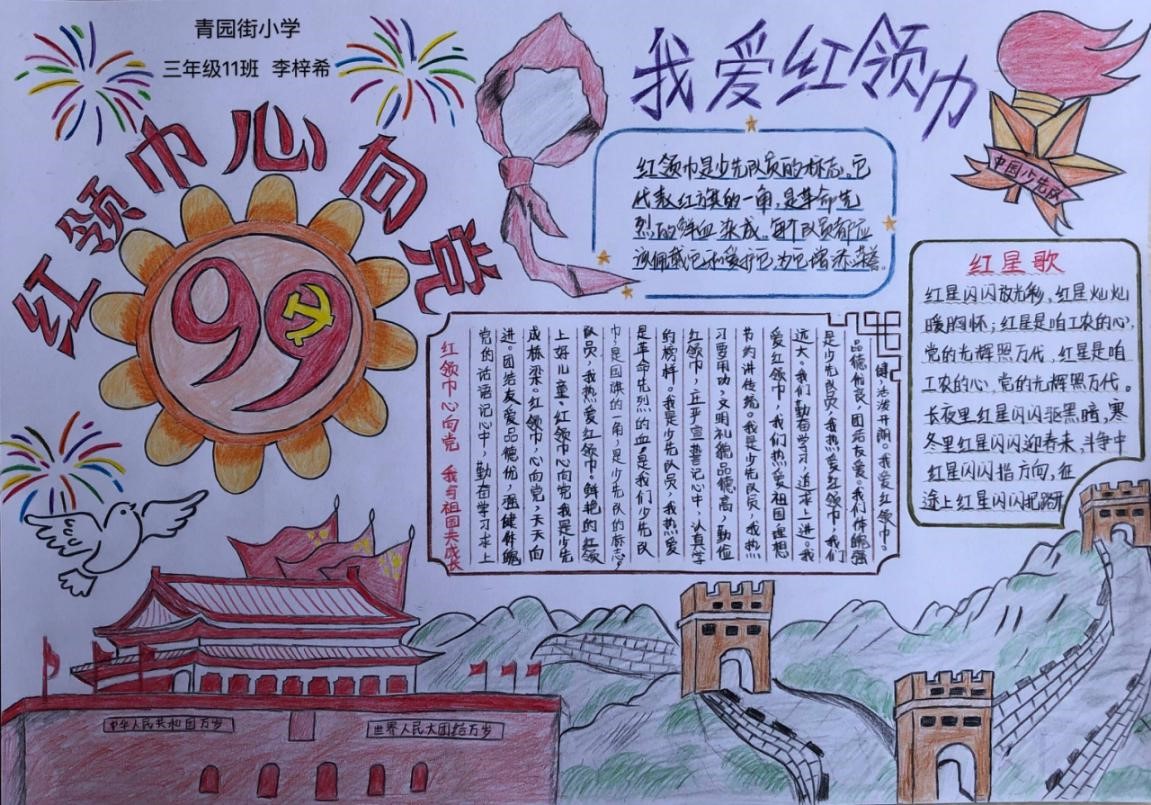 青园街小学
三年级11班 李梓希
红领巾心向党
99
我爱红领巾
中国少先队
红领巾是少先队员的标志,它
代表红旗的一角,是革命先
烈的鲜血染成。每个队员都应
该佩戴它和爱护它,为它增添荣誉。
红星歌
红星闪闪放光彩,红星灿灿
暖胸怀;红星是咱工农的心,
党的光辉照万代,红星是咱
工农的心,党的光辉照万代。
长夜里红星闪闪驱黑暗,寒
冬里红星闪闪迎春来,斗争中
红星闪闪指方向,征
途上红星闪闪把路开
健,活泼开朗。我爱红领巾。
品德优良,团结友爱。我们体魄强
是少先队员,我热爱红领巾,我们
远大,我们勤奋学习,追求上进。我
爱红领巾,我们热爱祖国,理想
节约讲传统。我是少先队员,我热
习要用功,文明礼貌品德高,勤俭
红领巾,庄严宣誓记心中,认真学
的榜样。我是少先队员,我热爱
是革命先烈的血,是我们少先队
巾,是国旗的一角,是少先队的标志,
队员,我热爱红领巾。鲜艳的红领
上好儿童。红领巾心向党我是少先
成栋梁。红领巾,心向党,天天向
进。团结友爱品德优,强健体魄
党的话语记心中,勤奋学习求上
红领巾心向党 我与祖国共成长
中华人民共和国万岁
世界人民大团结万岁